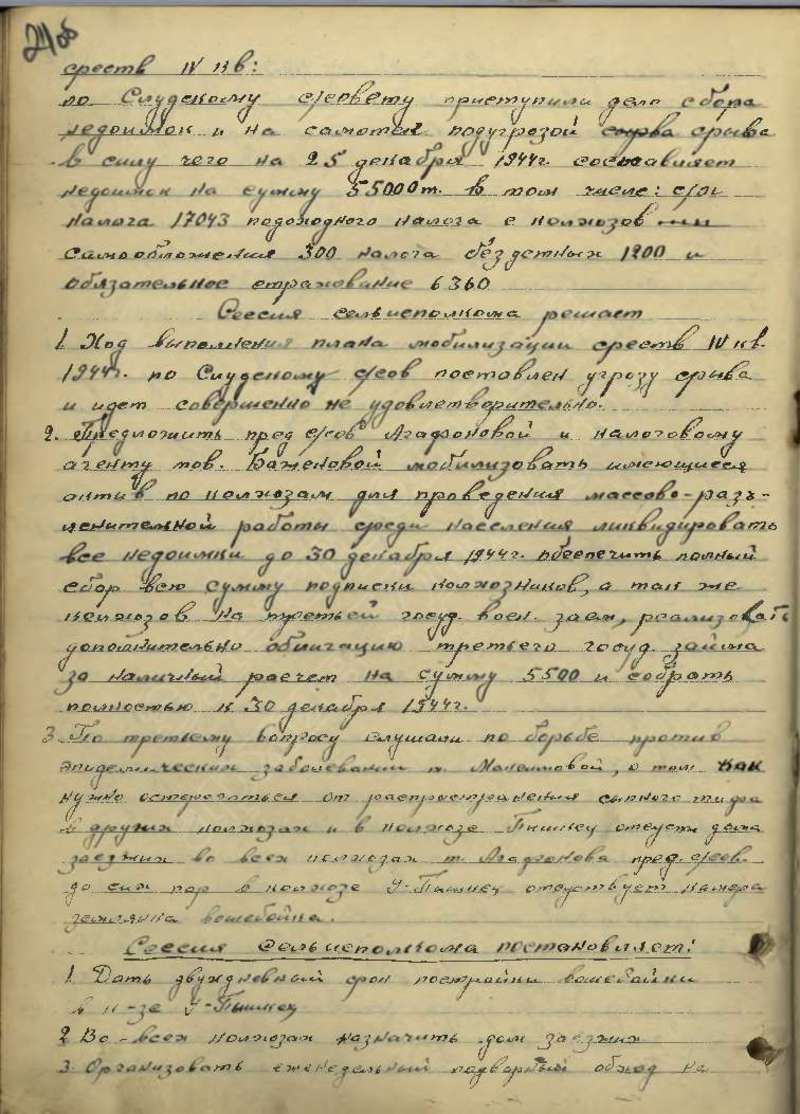 24об
средств IV кв:
по Слудскому с/совету приступили дело сбора
недоимок и на самотек под угрозой срыва
в силу чего на 25 декабря 1944г. составляет
недоимок на сумму 55000т. в том числе: с/хоз
налога 17043 подоходного налога с колхозов
самообложения 300 налога бездетных 1200 и
обязательное страхование 6360
Сессия сельисполкома решает
1. Ход выполнения плана мобилизации средств IV кв.
1944г. по Слудскому с/сов поставлен угрозу срыва
и идет совершенно не удовлетворительно.
2. Предложить пред с/сов Агафоновой и налоговому
агенту тов. Баженовой мобилизовать имеющиеся
актив по колхозам для проведения массово-разъ-
яснительной работы среди населения ликвидировать
все недоимки до 30 декабря 1944г. обеспечить полный
сбор всю сумму подписки колхозников, а так же
колхозов на третьей госуд. воен. заем, реализовать
дополнительно облигацию третьего госуд. займа
за наличный расчет на сумму 5500 и собрать
полностью к 30 декабря 1944г.
3. По третьему вопросу слушали по борьбе против
эпидемических заболеваний т. Максимовой, о том как
нужно остерегаться от распространения сыпного тифа
в других колхозах и в колхозе Пышнец отсутс дома
заезжих во всех колхозах т. Агафонова пред. с/сов.
до сих пор в колхозе У-Пышнец отсутствует камера
землянка вошебойка.
Сессия сельисполкома постановляет:
1. Дать двухдневный срок постройки вошебойки
в к-зе У-Пышнец
2 Во-всех колхозах назначить дом заезжих
3. Организовать еженедельный подворный обход на